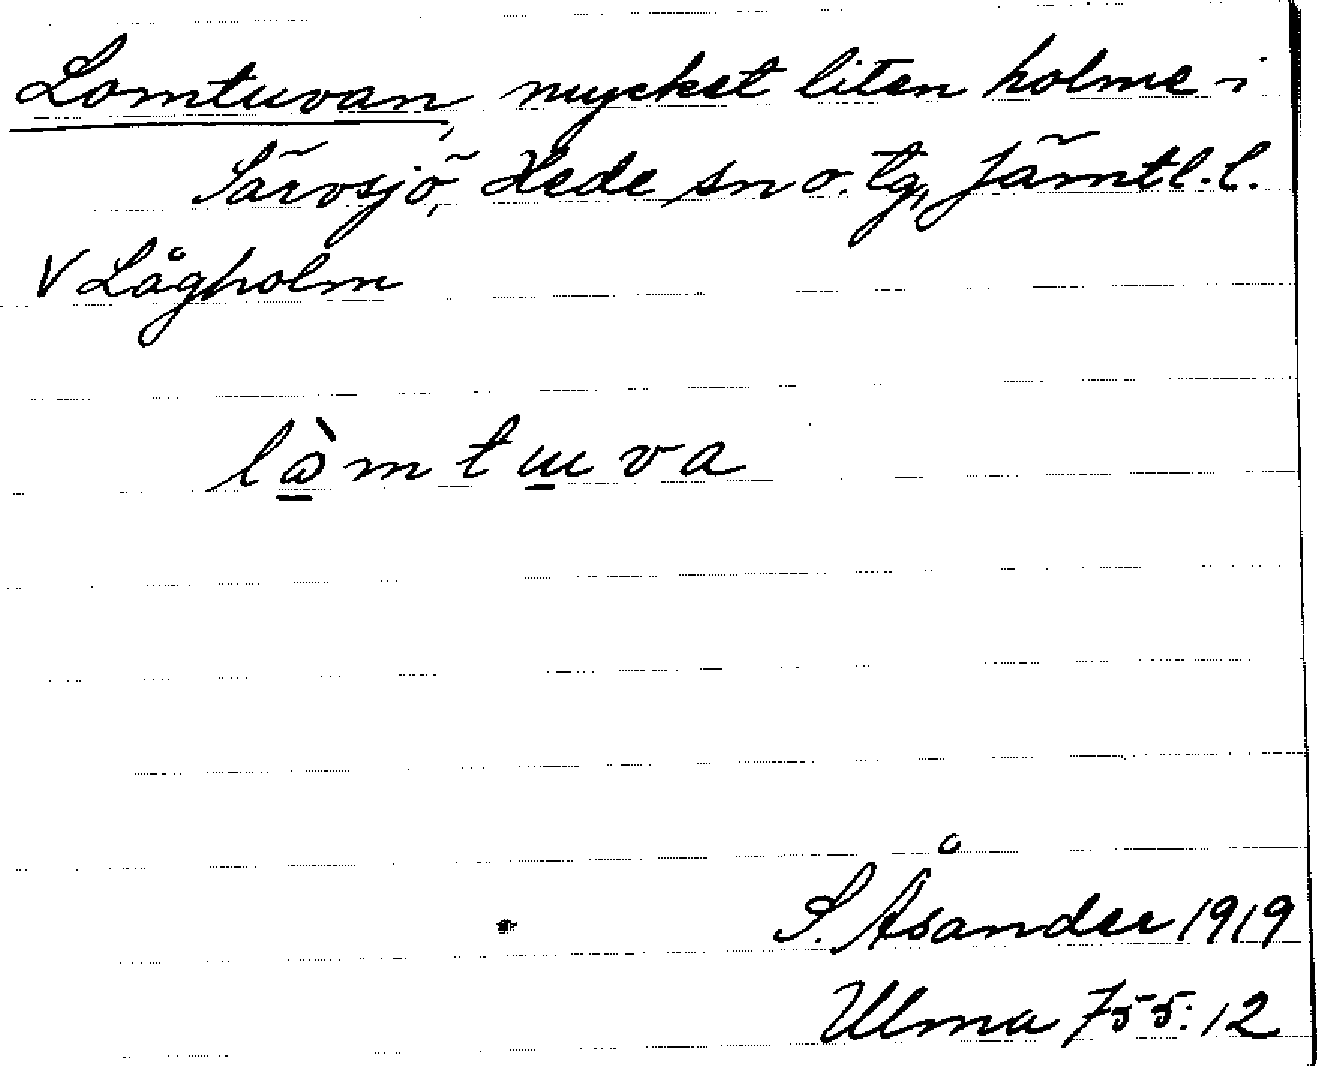 Lomtuvan, mycket liten holme i
Särvsjö, Hede sn o. tg, Jämtl. l.
V Lågholm
lò̱mtu̱va
S. Åsander 1919
Ulma 755:12